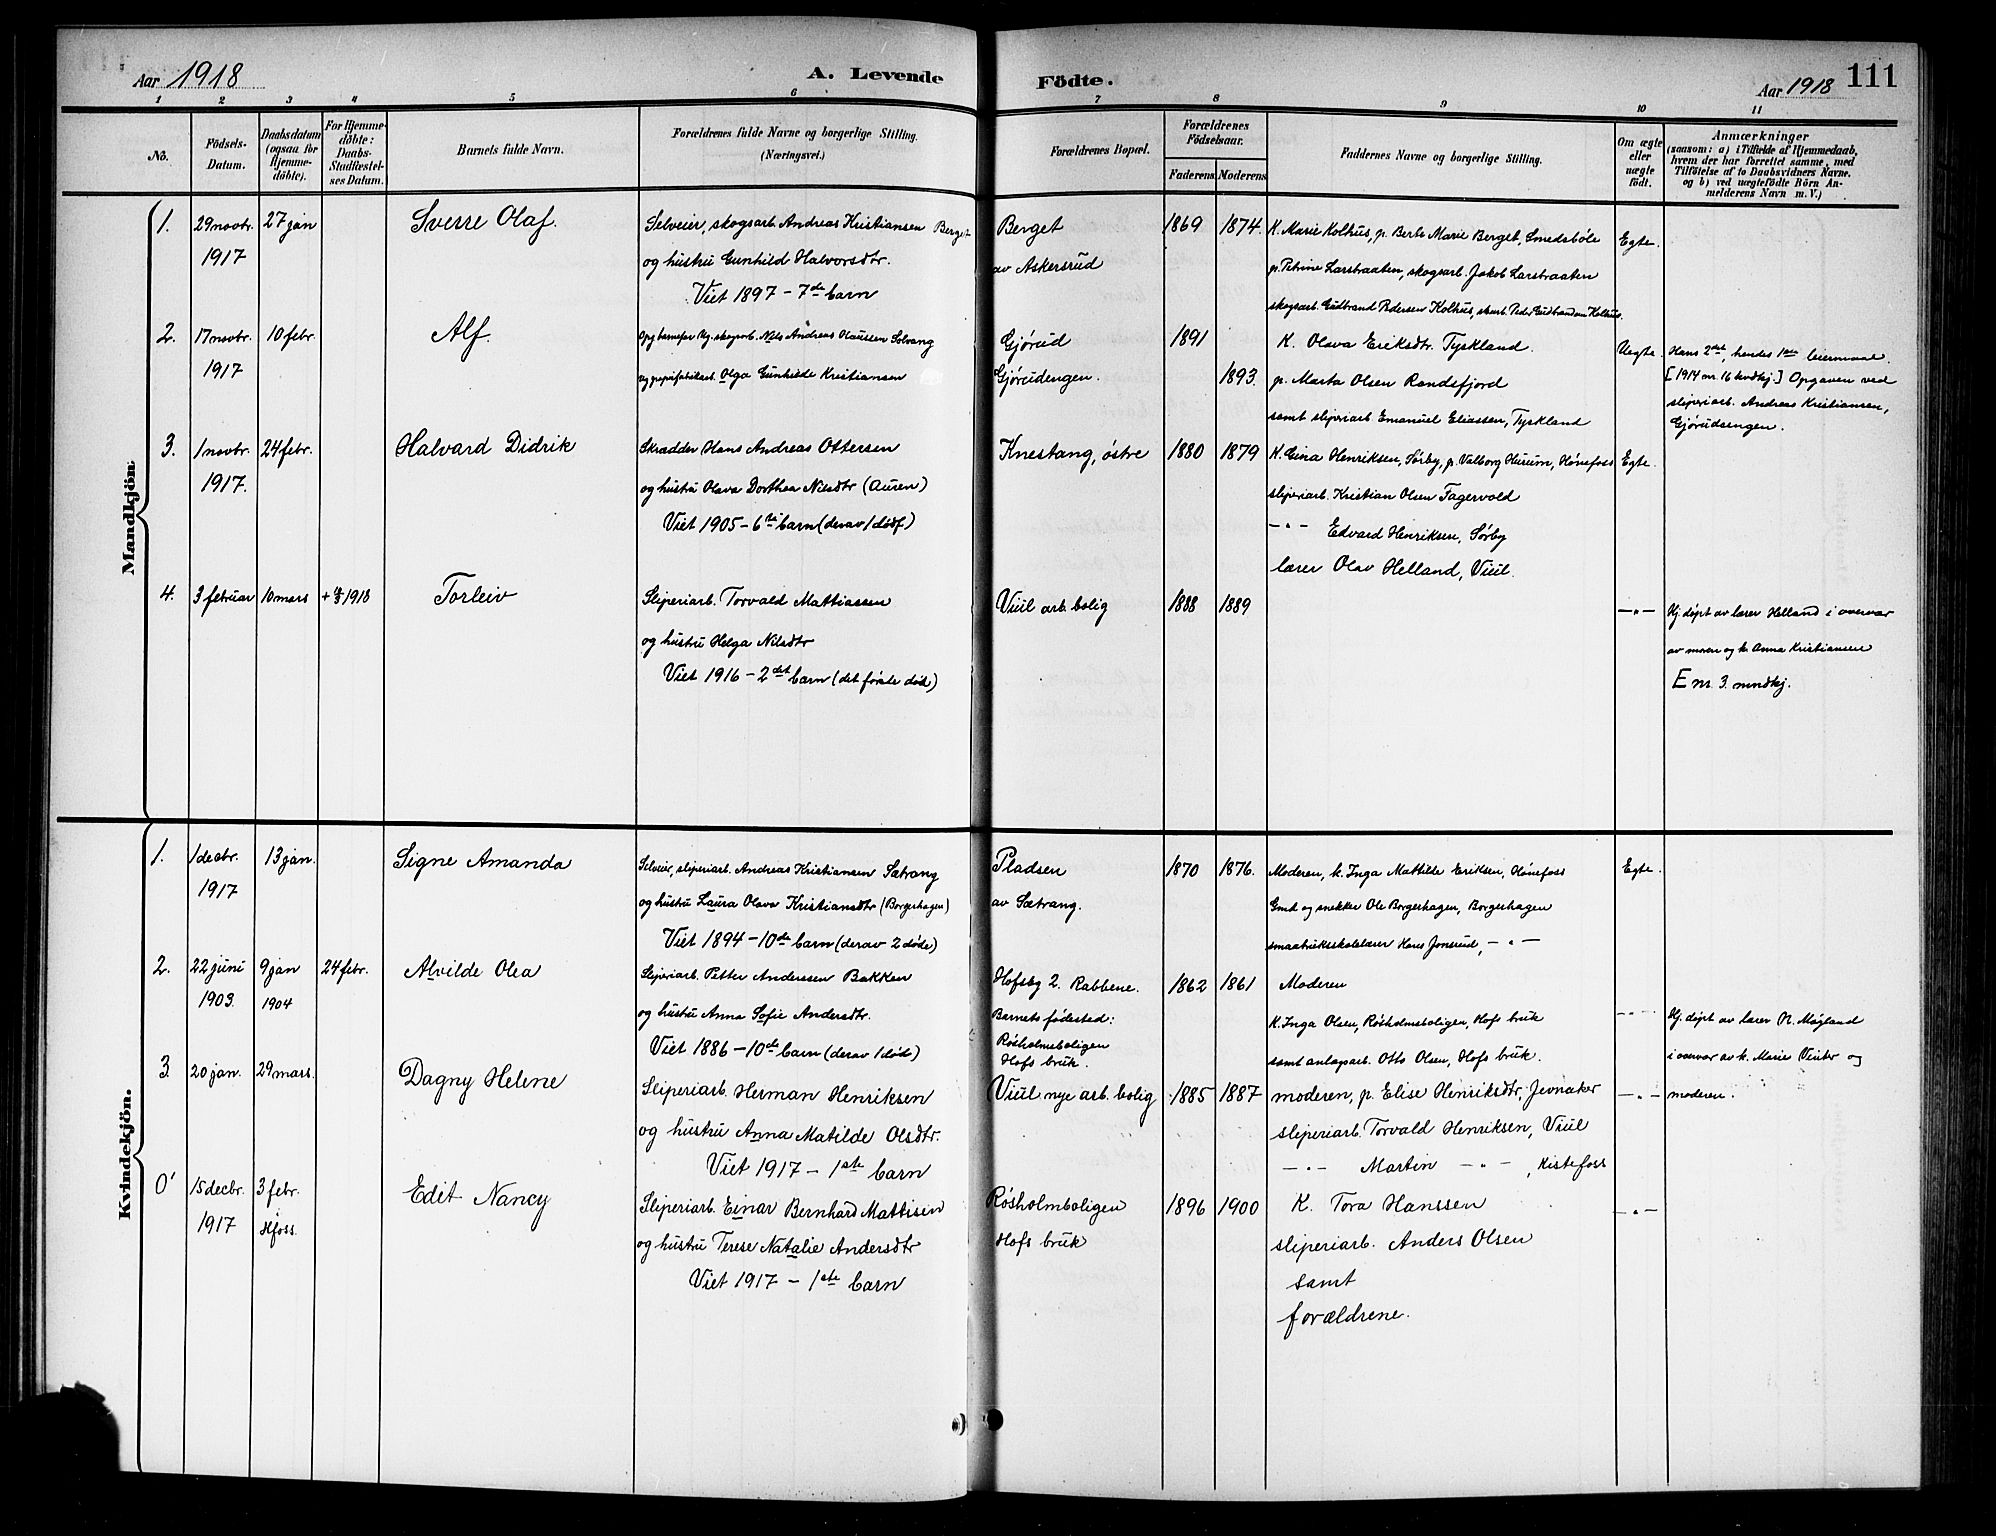 Aar 1918
A. Levende Födte.
Aar 1918
111
1 2 3 4 5 6 7 8 9 10 11
No.
Födsels-Datum.
Daabsdatum (ogsaa for Hjemme-döbte).
For Hjemme-döbte: Daabs-Stadfæstel-ses Datum.
Barnets fulde Navn.
Forældrenes fulde Navne og borgerlige Stilling. (Næringsvei.)
Forældrenes Bopæl.
Forældrenes Födselsaar.
Faderens Moderens
Faddernes Navne og borgerlige Stilling.
Om ægte eller uægte födt.
Anmærkninger
(saasom: a) i Tilfælde af Hjemmedaab,
hvem der har forrettet samme, med
Tilföielse af to Daabsvidners Navne.
og b) ved uægtefödte Börn An-
melderens Navn m. V.)
Mandkjön.
1. 29 novbr. 1917
27 jan
Sverre Olaf.
Selveier, skogsarb. Andreas Kristiansen Berget
og hustru Gunhild Halvorsdtr.
Viet 1897 - 7de barn
Berget
av Askersrud
1869 1874.
K. Marie Kolhus, p. Berte Marie Berget, Smedsböle
p. Petrine Larsbraaten, skogsarb. Jakob Larsbraaten
skogsarb. Gudbrand Pedersen Kolhus, skarb. Peder Gudbrandsen Kolhus.
Egte.
2. 17 novbr. 1917
10 febr.
Alf.
Opg barnefar Ug. skogarb. Nils Andreas Olaussen Solvang
ug papirfabrikarb. Olga Gunhilde Kristiansen
Gjørud
Gjørudengen.
1891
1893.
K. Olava Eriksdtr. Tyskland.
p. Marta Olsen Randsfjord
samt sliperiarb Emanuel Eliassen, Tyskland
Uegte.
Hans 2det, hendes 1ste leiermaal.
[1914 nr. 16 kvdkj.] Opgaven ved
sliperiarb. Andreas Kristiansen,
Gjørudsengen.
3. 1 novbr. 1917.
24 febr.
Halvard Didrik
Skrædder Hans Andreas Ottersen
og hustru Olava Dorthea Nilsdtr (Auren)
Viet 1905 - 6te barn (derav 1 dødf)
Knestang, østre
1880 1879
K. Gina Henriksen, Sørby, p. Valborg Hurum, Hönefoss
sliperiarb. Kristian Olsen Fagervold
- " - Edvard Henriksen, Sørby
lærer Olav Helland, Viul.
Egte.
4. 3 februar
10 mars
Torleiv
Sliperiarb. Torvald Mattiassen
og hustru Helga Nilsdtr
Viet 1916 - 2det barn (det første død)
Viul arb. bolig
1888 1889
- " -
Hj. døpt av lærer Helland i overvær
av moren og k. Anna Kristiansen
E nr. 3. mndkj.
Kvindekjön.
1. 1 decbr. 1917
13 jan.
Signe Amanda
Selveier, sliperiarb. Andreas Kristiansen Sætrang
og hustru Laura Olava Kristiansdtr (Borgerhagen)
Viet 1894 - 10de barn (derav 2 døde)
Pladsen
av Sætrang.
1870 1876.
Moderen, k. Inga Mathilde Eriksen, Hönefoss
Gmd og snekker Ole Borgerhagen, Borgerhagen
smaabruksskolelærer Hans Jonsrud, - " -
Egte.
2. 22 juni 1903.
9 jan 1904
24 febr.
Alvilde Olea
Sliperiarb. Petter Anderssen Bakken
og hustru Anna Sofie Andersdtr.
Viet 1886 - 10de barn (derav 1 død)
Hofsby 2. Rabbene.
Barnets fødested:
Røsholmboligen
Hofs bruk.
1862 1861
Moderen
K. Inga Olsen, Røsholmsboligen, Hofs bruk
samt anlægsarb. Otto Olsen, Hofs bruk.
- " -
Hj. døpt av lærer N. Møgland
i overvær av k. Marie Vinter og
moderen.
3 20 jan.
29 mars.
Dagny Helene
Sliperiarb. Herman Henriksen
og hustru Anna Matilde Olsdtr.
Viet 1917 - 1ste barn
Viul nye arb. bolig
1885 1887
moderen, p. Elise Henriksdtr, Jevnaker
sliperiarb. Torvald Henriksen, Viul
- " - Martin - " -, Kistefoss
- " -
0' 15 decbr. 1917
3 febr. Hfoss.
Edit Nancy
Sliperiarb. Einar Bernhard Mattisen
og hustru Terese Natalie Andersdtr
Viet 1917 - 1ste barn
Røsholmboligen
Hofs bruk
1896 1900
K. Tora Hanssen
sliperiarb. Anders Olsen
samt
forældrene.
- " -